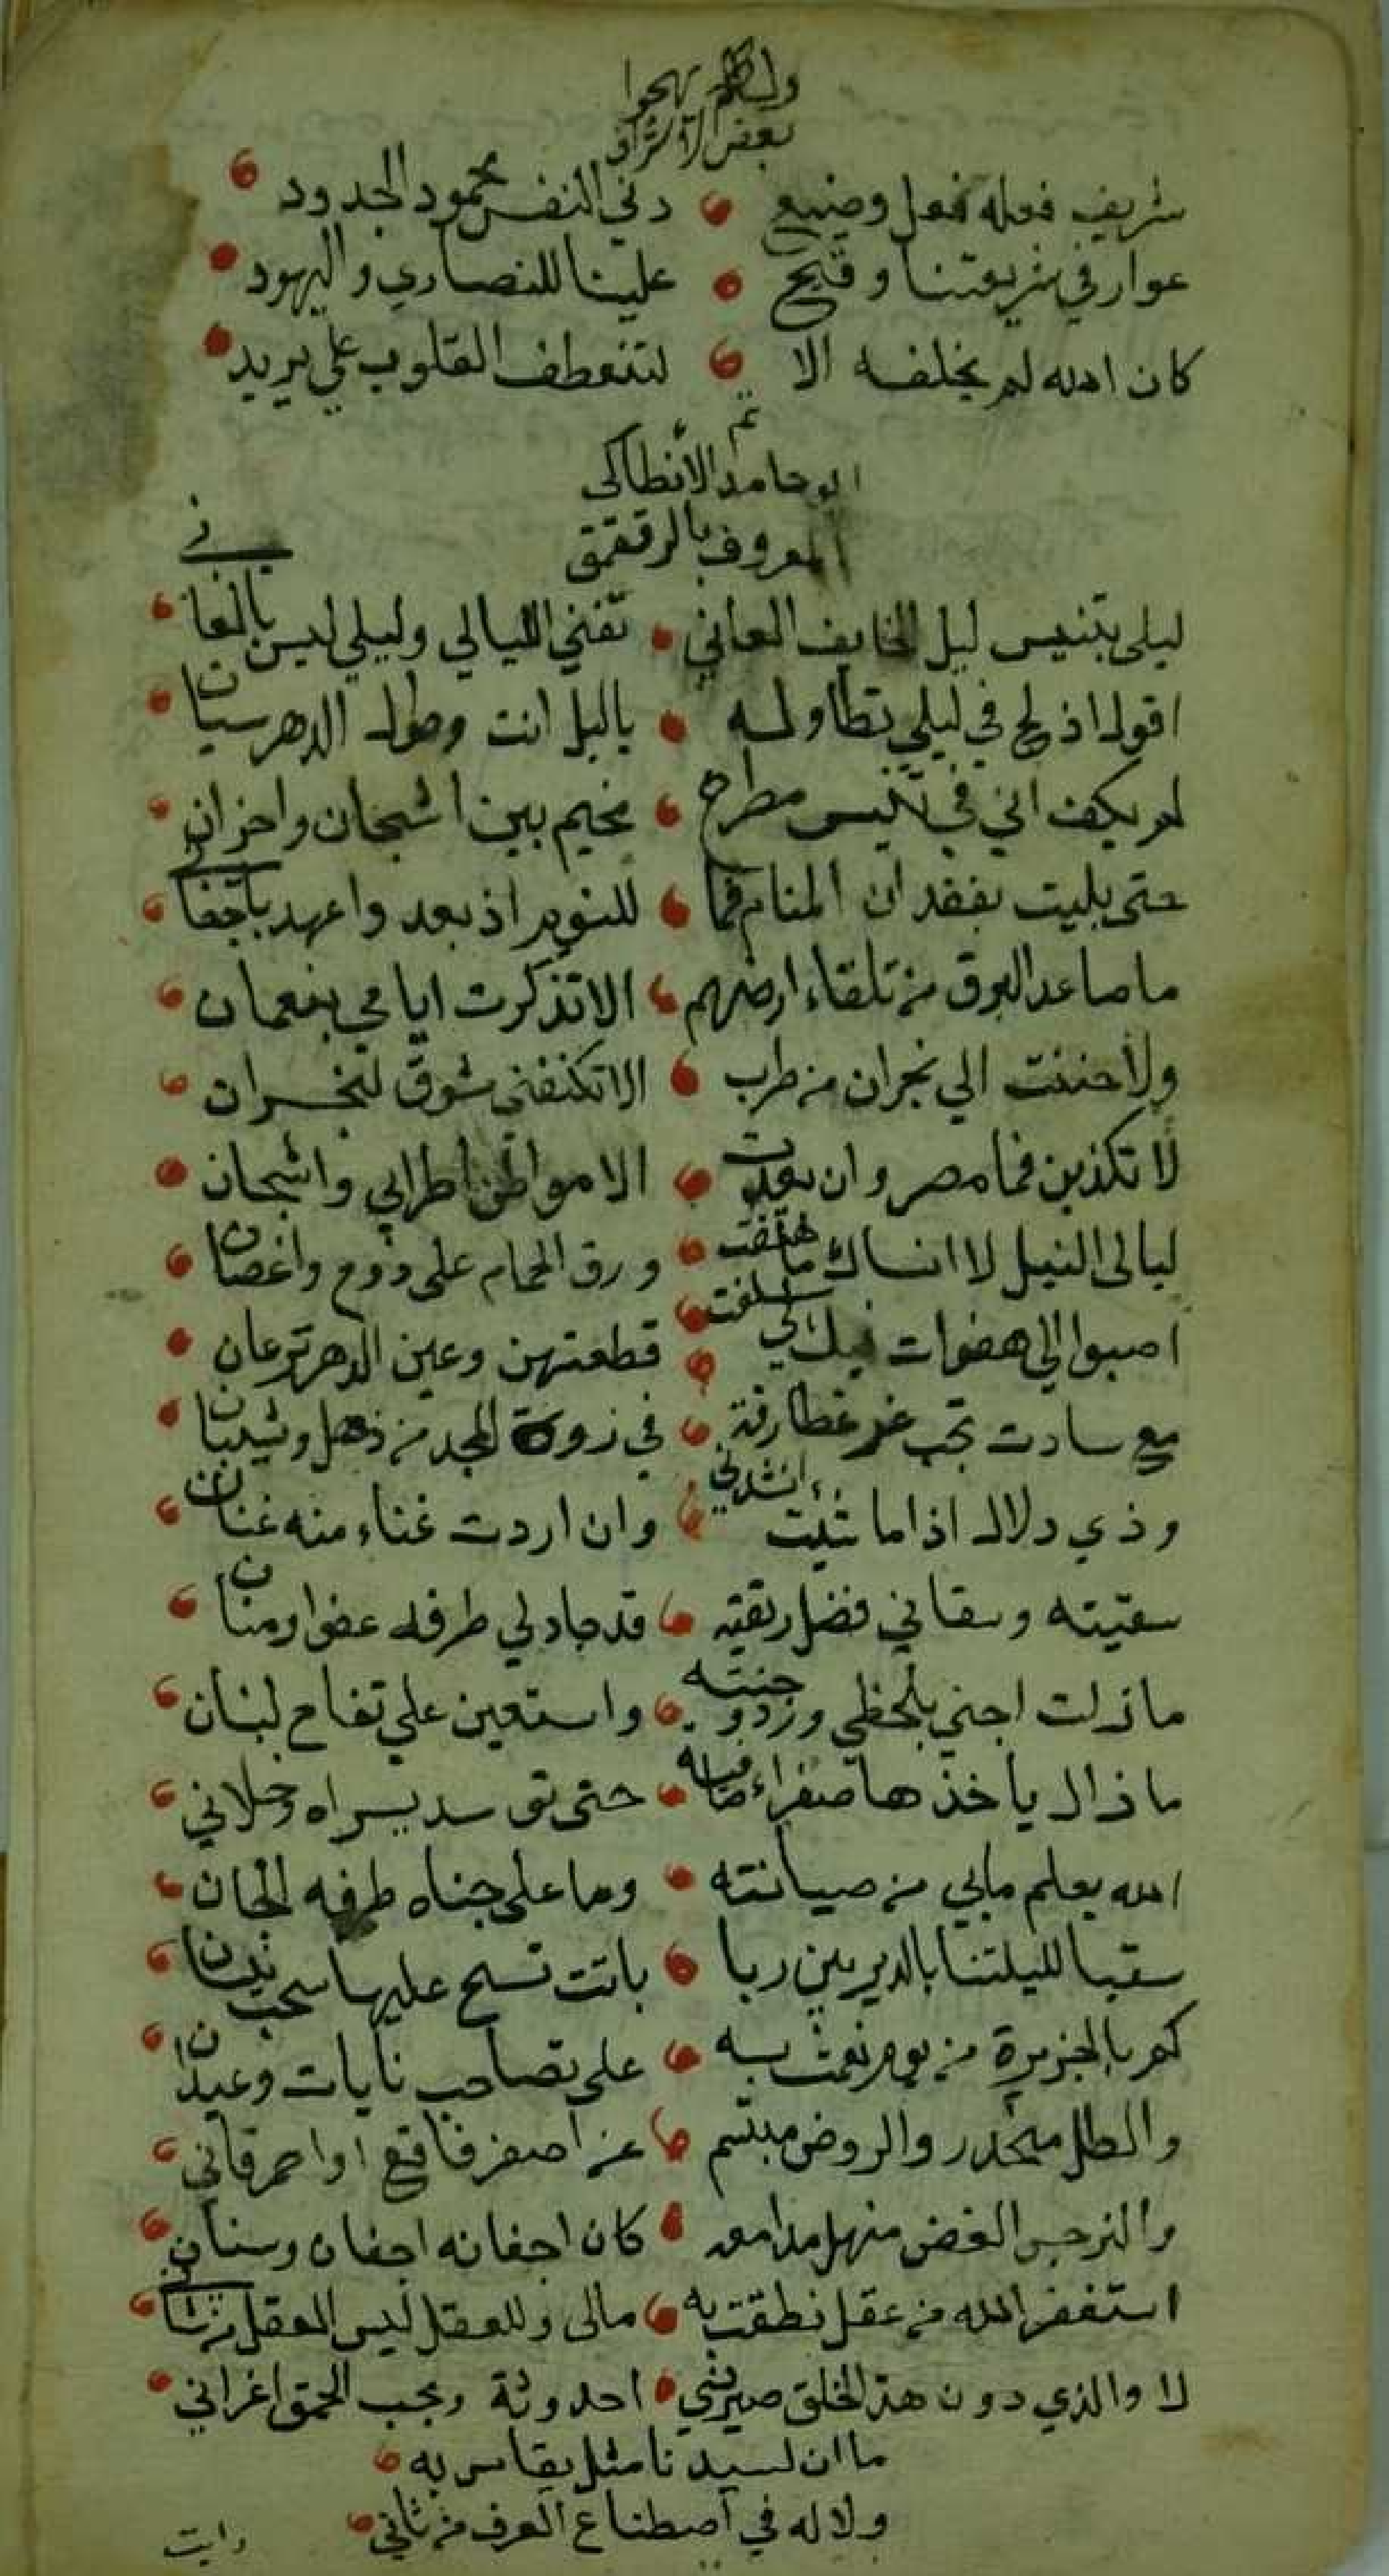 ولبعضهم يهجوا
بعض الاشراف
شريف فعله فعل وضيع دني النفس محمود الجدود
عوار في شريعتنا وقبح علينا للنصاري واليهود
كان الله لم يخلفه الا لتنعطف القلوب علي يزيد
تم
ابو حامد الانطاكي
المعروف بالرقعمق
ليلي بتنيس ليل الخايف العاني تفني الليالي وليلي ليس بالفاني
اقول اذ لج في ليلي تطاوله ياليل انت وطول الدهر سيان
لم يكف اني في تنيس مطرح مخيم بين اشجان واحزان
حتى بليت بفقدان المنام فما للنوم اذ بعد واعهد باجفاني
ما صاعد البرق من تلقاء ارضهم الا تذكرت ايامي بنعمان
ولا حننت الي نجران من طرب الا تكنفني شوق لنجران
لا تكذبن فما مصر وان بعدت الا مواطن اطرابي واشجان
ليالي النيل لا انساك ما هتفت ورق الحمام على دوح واغصان
اصبوا الي هفوات فيك لي سلفت قطعتهن وعين الدهر ترعان
مع سادت نجب غر غطارفة في زروة المجد من ذهل وشيبان
وذي دلال اذا ما شيت انشدني وان اردت غناء منه غنان
سقيته وسقاني فضل ريقته قد جاد لي طرفه عفوا ومنان
مازلت اجني بلحظي ورد وجنته واستعين علي تفاح لبنان
مازال ياخذها صفراء صافيه حتى توسد يسراه وخلاني
الله يعلم مابي من صيانته وما على جناه طرفه الجان
سقيا لليلتنا بالدير بين ربا باتت تسح عليها سحب نيسان
كم بالجزيرة من يوم نعمت به على تصاحب نايات وعيدان
والطل منحدر والروض مبتسم عن اصفر فاقع اواحمر قاني
والنرجس الغض منهل مدامعه كان اجفانه اجفان وسنان
استغفر الله من عقل نطقت به مالى وللعقل ليس العقل من شاني
لا والذي دون هذ الخلق صيرني احدوثة وبحب الحمق اغراني
ما ان لسيدنا مثل يقاس به
ولا له في اصطناع العرف من ثاني
رايت